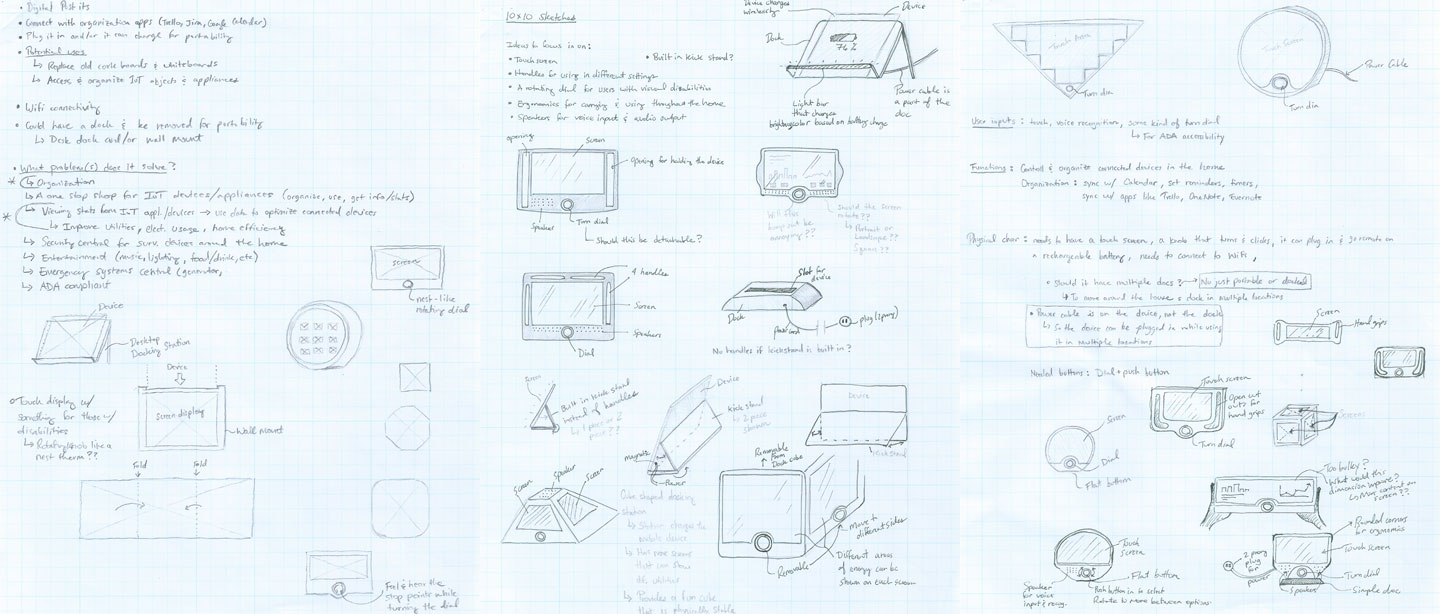 • Digital Post its
• Connect with organization apps (Trello, Jira, Google Calendar)
• Plug it in and/or it can charge for portability
• Potential uses
↳ Replace old cork boards & whiteboards
↳ Access & organize IoT objects & appliances
• Wifi connectivity
• Could have a dock & be removed for portability
↳ Desk dock and/or wall mount
• What problem(s) does it solve?
* ↳ Organization
↳ A one stop shop for IoT devices/appliances (organize, use, get info/stats)
* ↳ Viewing stats from IoT appl./devices → use data to optimize connected devices
↳ Improve utilities, elect. usage, home efficiency
↳ Security central for surv. devices around the home
↳ Entertainment (music, lighting, food/drink, etc)
↳ Emergency systems central (generator,
↳ ADA compliant
Screen
nest-like
rotating dial
Device
Desktop
Docking Station
Device
Screen display
Wall mount
Touch display w/
something for those w/
disabilities
↳ Rotating knob like a
nest therm??
fold
fold
Feel & hear the
stop points while
turning the dial
10x10 Sketches
Ideas to focus in on:
• Touch screen
• Built in kick stand?
• Handles for using in different settings
• A rotating dial for users with visual disabilities
• Ergonomics for carrying & using throughout the home
• Speakers for voice input & audio output
Device charges
wirelessly
Device
Dock
76%
Light bar
that changes
brightness/color based on battery charge
Power cable is
a part of the
doc
opening
Screen
Opening for holding the device
Speaker
Turn dial
↳ Should this be detachable?
Will this
bump out be
annoying??
Should the screen
rotate??
↳ Portrait or
Landscape??
Square??
4 handles
Screen
Speakers
Dial
Slot for
device
Dock
plug (2 prong)
No handles if kickstand is built in?
Screen
Built in kick stand
instead of handles
↳ 1 piece or 2
piece??
Device
Kick stand
↳ 2 piece
shown
magnets
Power
Device
Kick stand
Screen
Speaker
Screen
Cube shaped docking
station
↳ Station charges the
mobile device
↳ Has more screens
that can show
the utilities
↳ Provides a fun cube
that is physically stable
Removable
from
Dock cube
move to
different sides
Removable
Different areas
of energy can be
shown on each screen
Touch Area
Turn dial
Touch Screen
Power Cable
Turn dial
User inputs: touch, voice recognition, some kind of turn dial
↳ For ADA accessibility
Functions: Control & organize connected devices in the home
Organization: sync w/ Calendar, set reminders, timers,
sync w/ apps like Trello, OneNote, Evernote
Physical char: needs to have a touch screen, a knob that turns & clicks, it can plug in & go remote on
a rechargeable battery, needs to connect to WiFi,
• Should it have multiple docs? → No just portable or docked
↳ To move around the house & dock in multiple locations
• Power cable is on the device, not the dock
↳ So the device can be plugged in while using
it in multiple locations
Screen
Hand grips
Needed buttons: Dial + push button
Touch screen
Open cut
outs for
hand grips
Turn dial
Screens
Screen
Dial
Flat button
Too bulky?
What would this
dimension improve?
↳ More content on
screen??
Touch
screen
Flat button
Speaker
for voice
input & recog.
Push button in to select
Rotate to move between options
Rounded corners
for ergonomics
Touch screen
2 prong
plug
for
power
Turn dial
Speakers
Simple doc